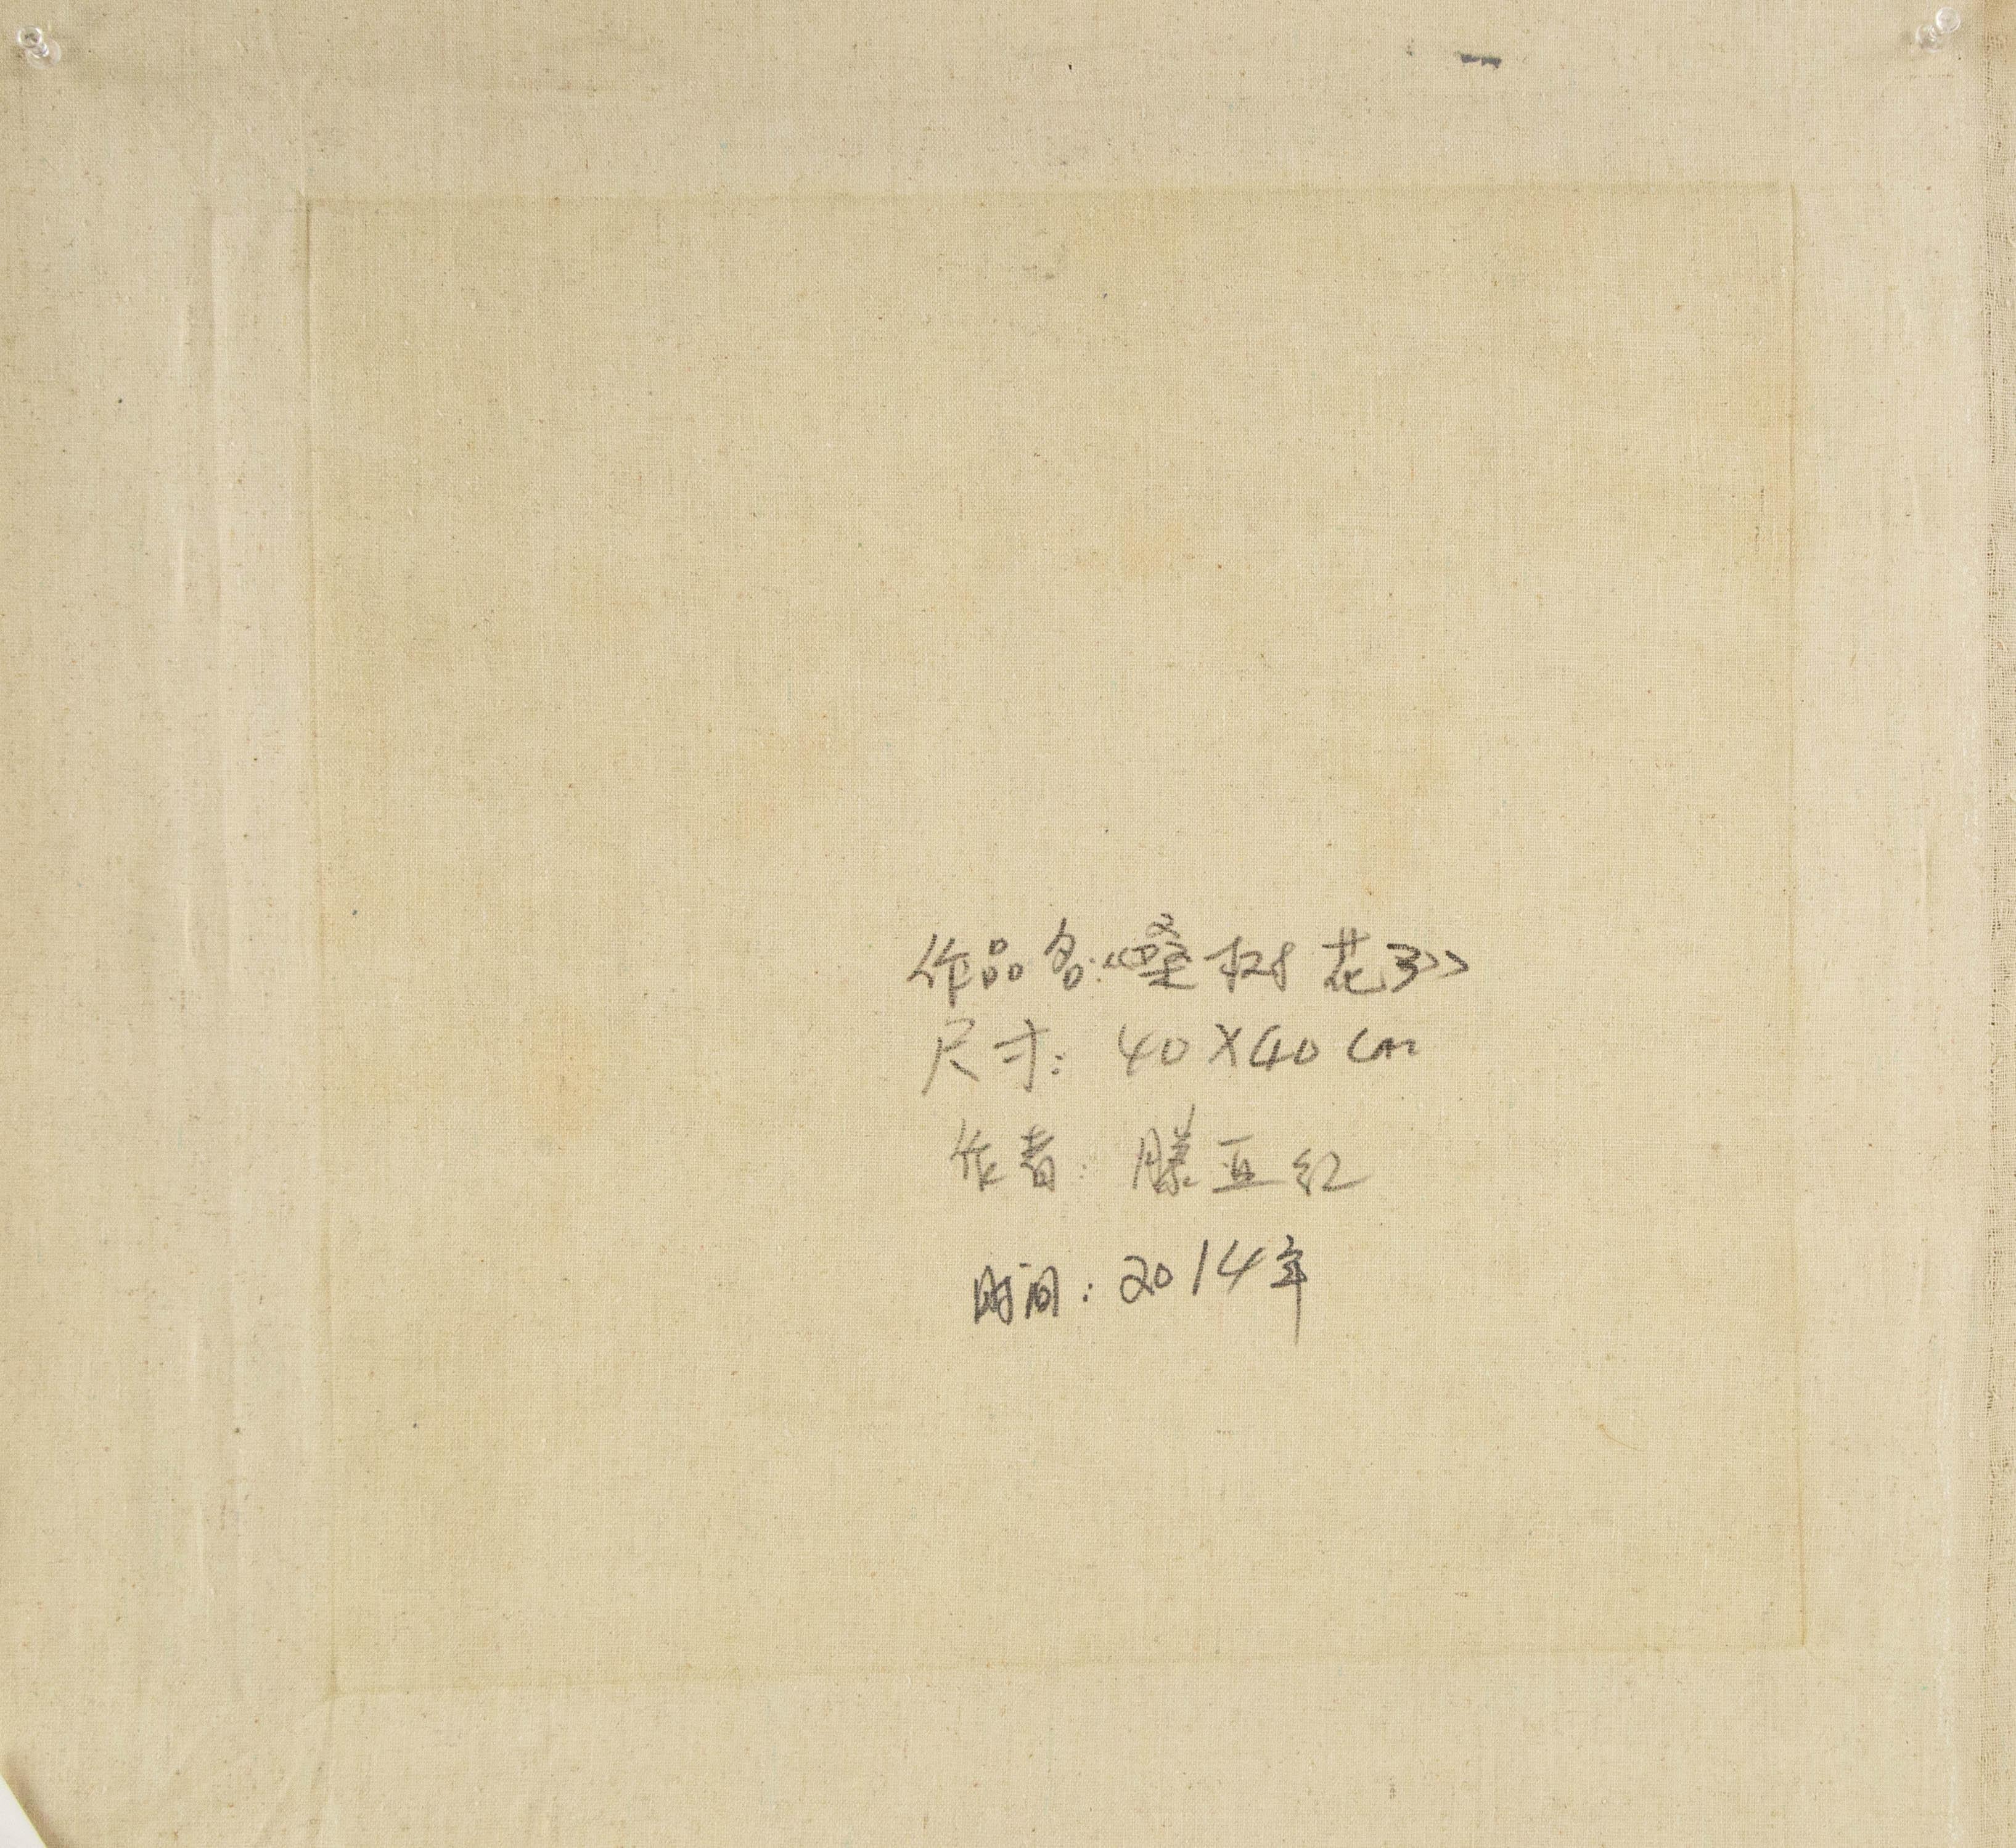 作品名:《树花3》
尺寸: 40X40cm
作者: 滕亚红
时间: 2014年